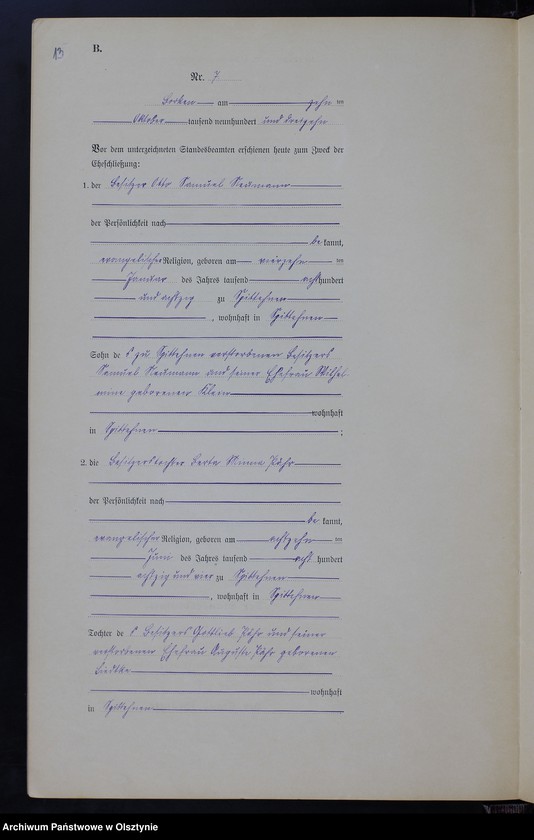 13
B.
Nr. 7
Borken am zehn ten
Oktober tausend neunhundert und dreizehn
Vor dem unterzeichneten Standesbeamten erschienen heute zum Zweck der
Eheschließung:
1. der Besitzer Otto Samuel Neumann
der Persönlichkeit nach
be kannt,
evangelischer Religion, geboren am vierzehn ten
Januar des Jahres tausend acht hundert
und achtzig zu Spittehnen
, wohnhaft in Spittehnen
Sohn de s zu Spittehnen verstorbenen Besitzers
Samuel Neumann und seiner Ehefrau Wilhel
mine geborenen Klein
wohnhaft
in Spittehnen ;
2. die Besitzerstochter Berta Minna
der Persönlichkeit nach
be kannt,
evangelischer Religion, geboren am achtzehn ten
Juni des Jahres tausend acht hundert
achtzig und vier zu Spittehnen
, wohnhaft in Spittehnen
Tochter de s Besitzers Gottlieb und seiner
verstorbenen Ehefrau Auguste geborenen
Liedtke
wohnhaft
in Spittehnen
Archiwum Państwowe w Olsztynie